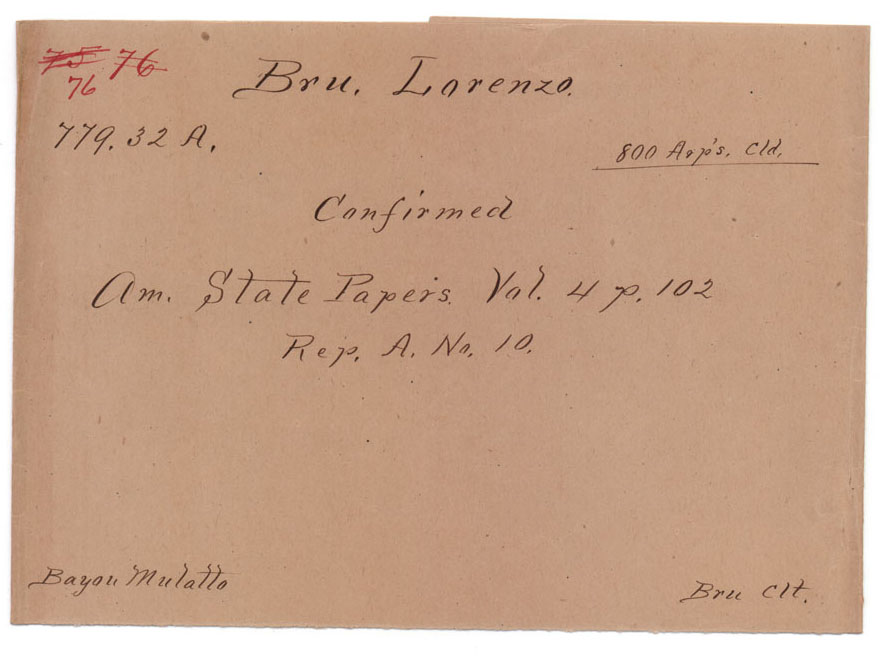 75 76
76
Bru. Lorenzo.
779.32 A.
800 Arp's. Cld.
Confirmed
Am. State Papers. Vol. 4 p. 102
Rep. A. No. 10.
Bayou Mulatto
Bru Clt.